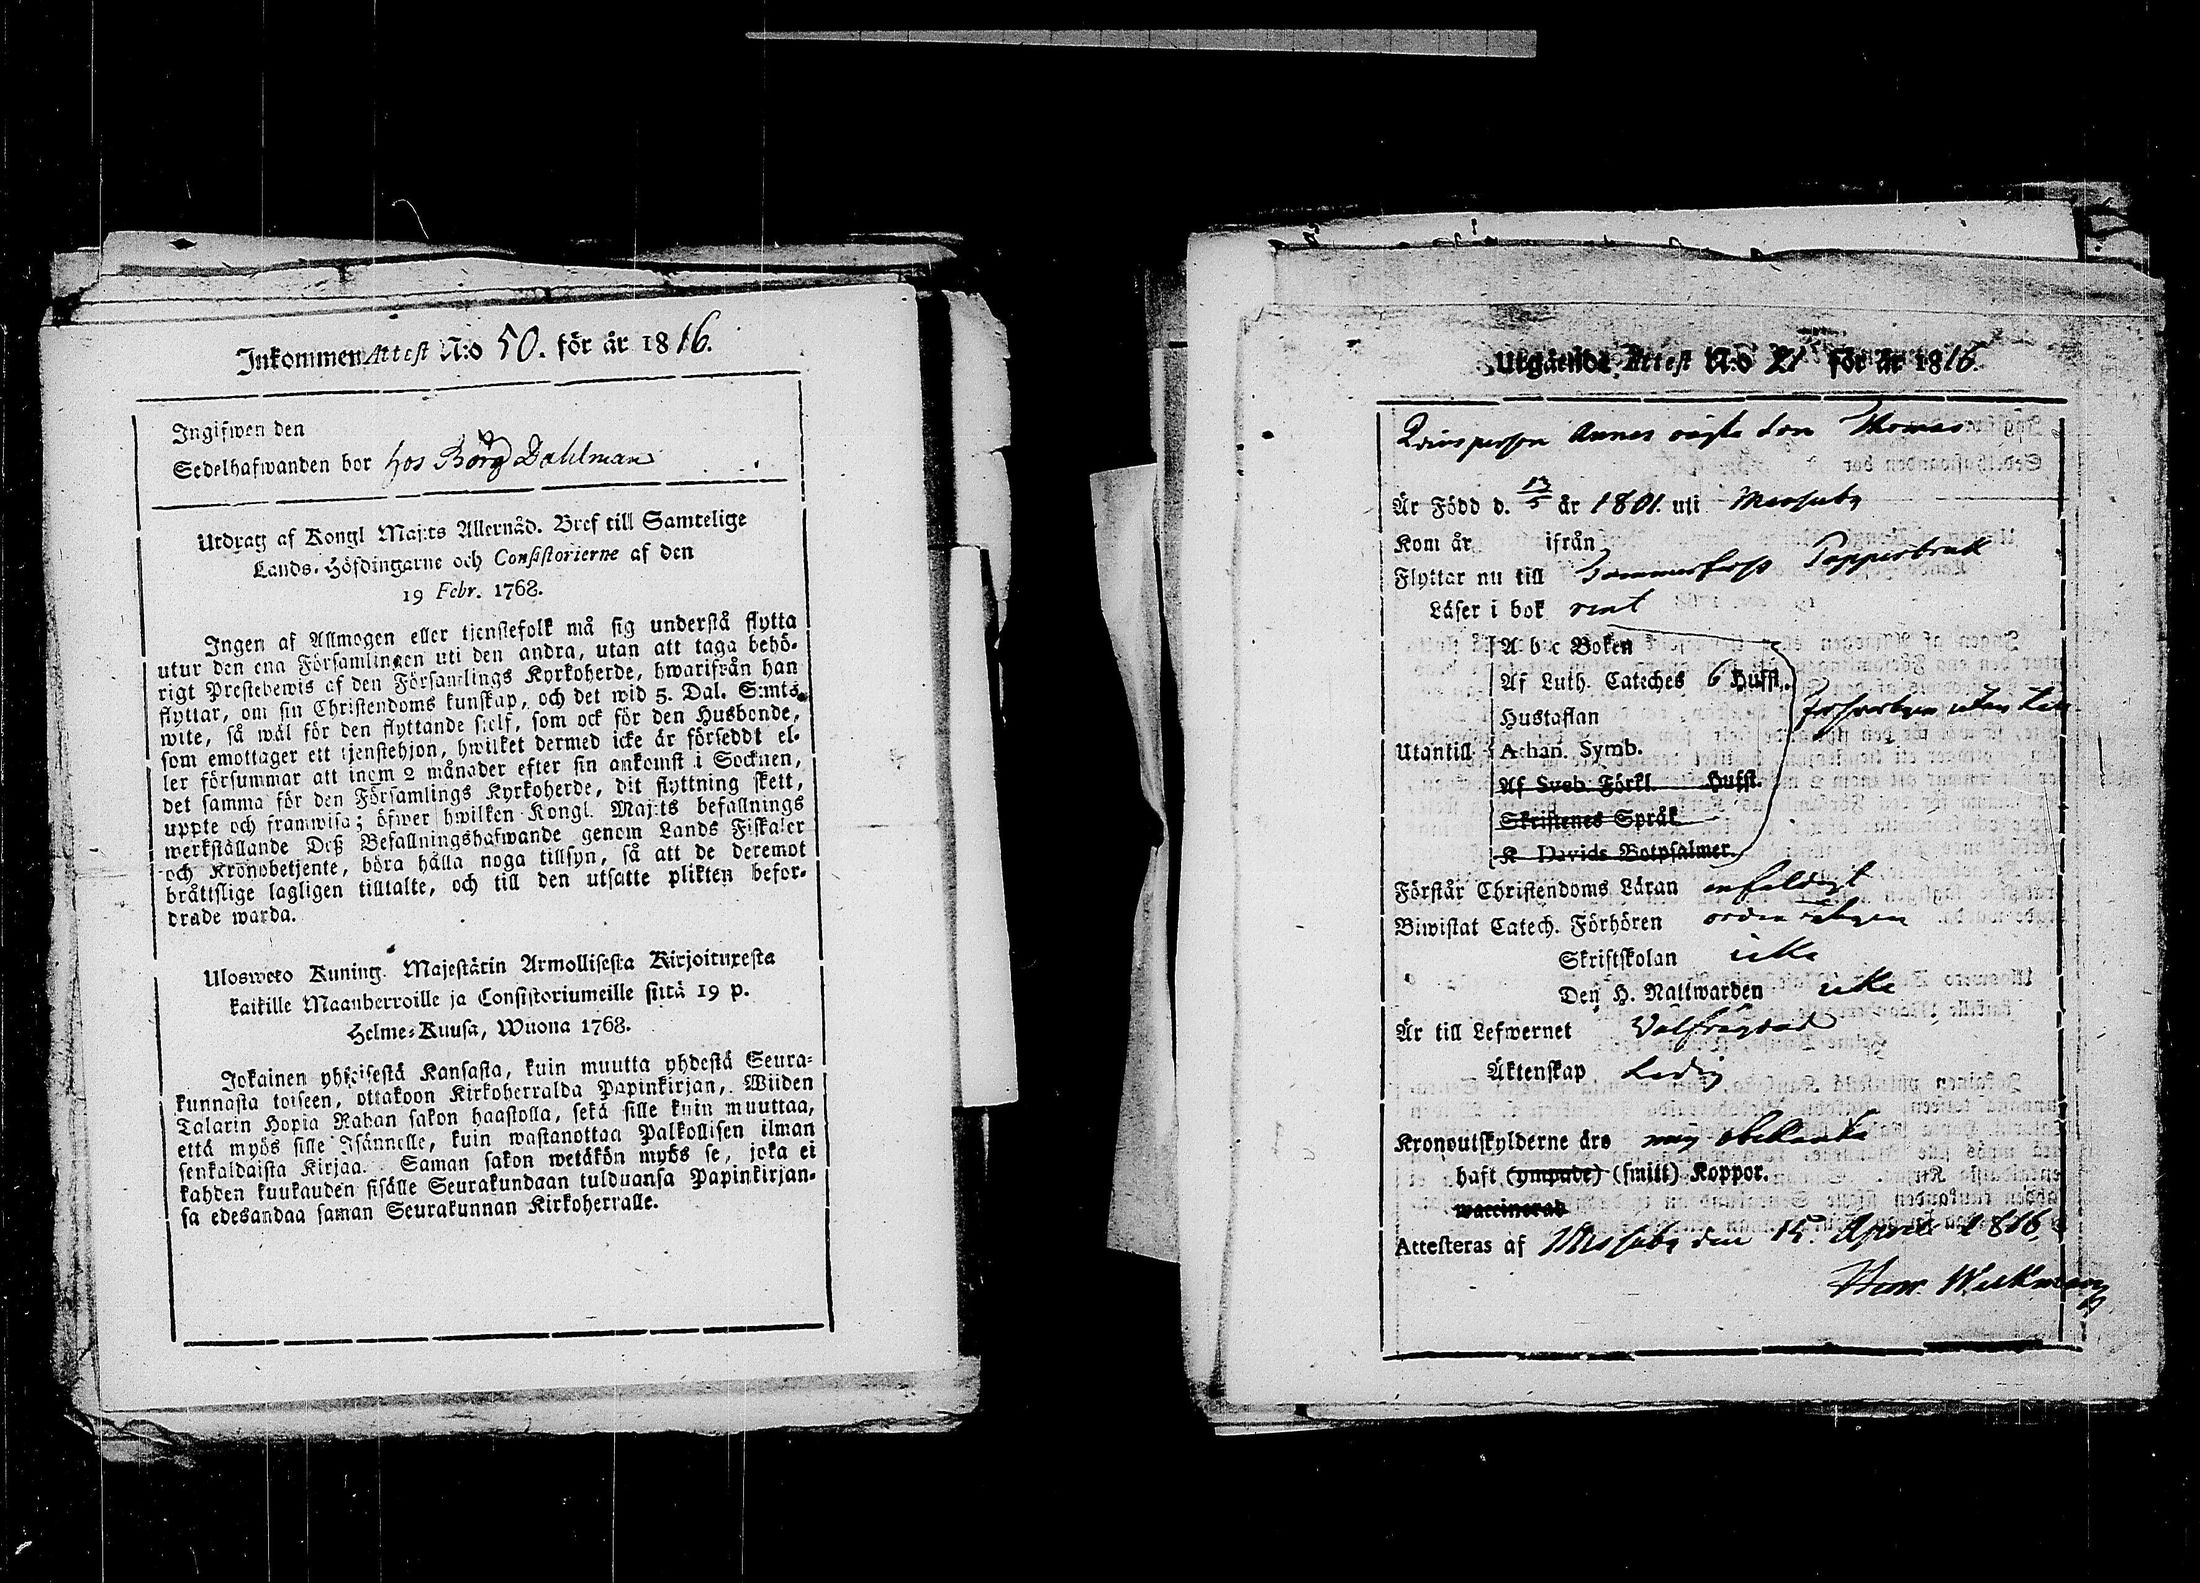 Inkommen Attest N:o 50. för år 1816.
Ingifwen den
Sedelhafwanden bor hos Borg Dahlman
Utdrag af Kongl Maj:ts Allernåd. Bref till Samtelige
Lands-Höfdingarne och Consistorierne af den
19 Febr. 1768.
Ingen af Allmogen eller tjenstefolk må sig understå flytta
utur den ena Församlingen uti den andra, utan att taga behö-
rigt Prestebewis af den Församlings Kyrkoherde, hwarifrån han
flyttar, om sin Christendoms kunskap, och det wid 5. Dal. S:mts
wite, så wäl för den flyttande sielf, som ock för den Husbonde,
som emottager ett tjenstehjon, hwilket dermed icke är förseddt el-
ler försummar att inom 2 månader efter sin ankomst i Socknen,
det samma för den Församlings Kyrkoherde, dit flyttning skett,
uppte och framwisa; öfwer hwilken Kongl. Maj:ts befallnings
werkställande Deß Befallningshafwande genom Lands Fiskaler
och Kronobetjente, böra hålla noga tillsyn, så att de deremot
bråttslige lagligen tilltalte, och till den utsatte plikten befor-
drade warda.
Uloswето Kuning. Majestätin Armollisesta Kirjoituxesta
kaikille Maanherroille ja Consistoriumeille siitä 19 p.
Helme-Kuusa, Wuona 1768.
Jokainen yhteisestä Kansasta, kuin muutta yhdestä Seura-
kunnasta toiseen, ottakoon Kirkoherralda Papinkirjan, Wiiden
Talarin Hopia Rahan sakon haastolla, sekä sille kuin muuttaa,
että myös sille Isännelle, kuin wastanottaa Palkollisen ilman
senkaldaista Kirjaa. Saman sakon wetäkön myös se, joka ei
kahden kuukauden sisälle Seurakundaan tulduansa Papinkirjan-
sa edesandaa saman Seurakunnan Kirkoherralle.
Utgående Attest N:o 21 för år 1816.
Annes Thomas
Är Född d. 13/5 år 1801. uti Messuby
Kom år ifrån
Flyttar nu till Tammerfors Pappersbruk
Läser i bok rent
A b c Boken
Af Luth. Cateches 6 Hufst.
Hustaflan
Utantill Athan. Symb.
Af Sveb. Förkl. Hufst.
Skriftenes Språk
K Davids Botpsalmer.
Förstår Christendoms Läran enfaldigt
Biwistat Catech. Förhören
Skriftskolan icke
Den H. Nattwarden icke
Är till Lefwernet Välfrägdad
Äktenskap Ledig
Kronoutskylderne äro
haft (ympade) (smitt) Koppor.
waccinerad
Attesteras af Messuby den 15 April 1816.